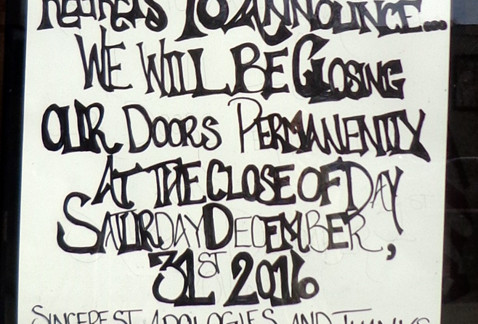 REGRETS TO ANNOUNCE...
WE WILL BE CLOSING
OUR DOORS PERMANENTLY
AT THE CLOSE OF DAY
SATURDAY DECEMBER,
31ST 2016
SINCEREST APOLOGIES AND THANKS